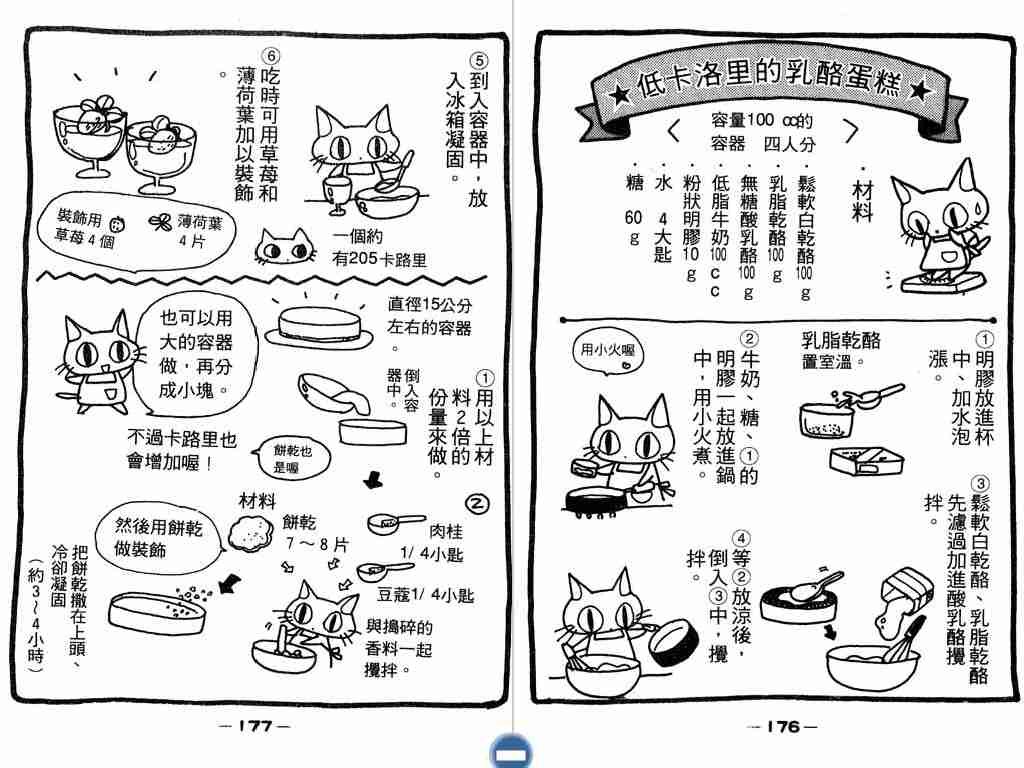 低卡洛里的乳酪蛋糕
容量100㏄的
容器 四人分
・材料
鬆軟白乾酪100g
・乳脂乾酪100g
・無糖酸乳酪100g
・低脂牛奶100cc
・粉狀明膠10g
・水 4大匙
・糖 60g
①明膠放進杯
中、加水泡
漲。
乳脂乾酪
置室溫。
②牛奶、糖、①的
明膠一起放進鍋
中，用小火煮。
用小火喔
③鬆軟白乾酪、乳脂乾酪
先濾過加進酸乳酪攪
拌。
④等②放涼後，
倒入③中，攪
拌。
－176－
⑤到入容器中，放
入冰箱凝固。
一個約
有205卡路里
⑥吃時可用草莓和
薄荷葉加以裝飾
。
裝飾用
草莓4個
薄荷葉
4片
直徑15公分
左右的容器
。
也可以用
大的容器
做，再分
成小塊。
①用以上材
料2倍的
份量來做。
倒入容
器中。
不過卡路里也
會增加喔！
餅乾也
是喔
②
材料
餅乾
7～8片
肉桂
1/4小匙
豆蔻1/4小匙
與搗碎的
香料一起
攪拌。
然後用餅乾
做裝飾
把餅乾撒在上頭、
冷卻凝固
（約3~4小時）
－177－